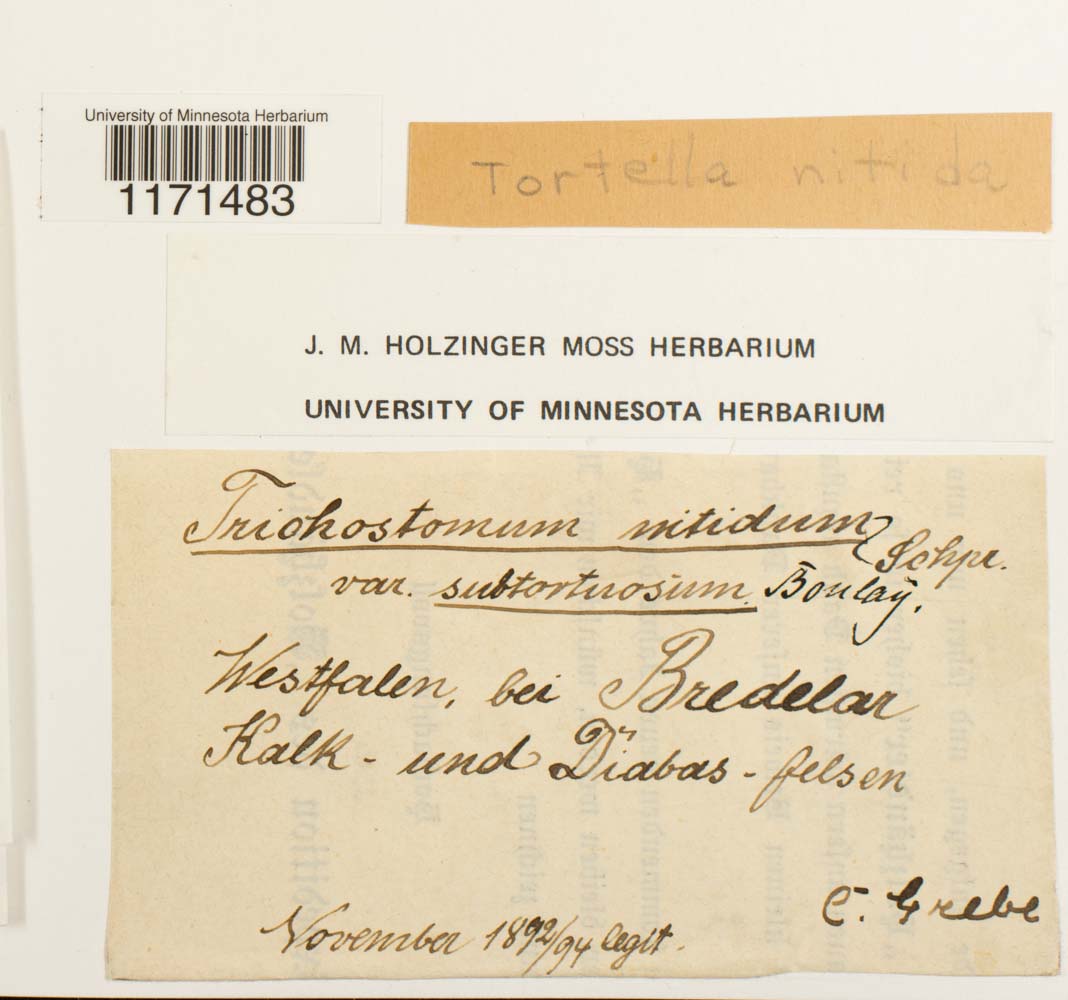 University of Minnesota Herbarium
1171483
Tortella nitida
J. M. HOLZINGER MOSS HERBARIUM
UNIVERSITY OF MINNESOTA HERBARIUM
Trichostomum nitidum Schpr.
var. subtortuosum. Boulay.
Westfalen, bei Bredelar
Kalk- und Diabas-felsen
C. Grebe
November 1892/94 legit.